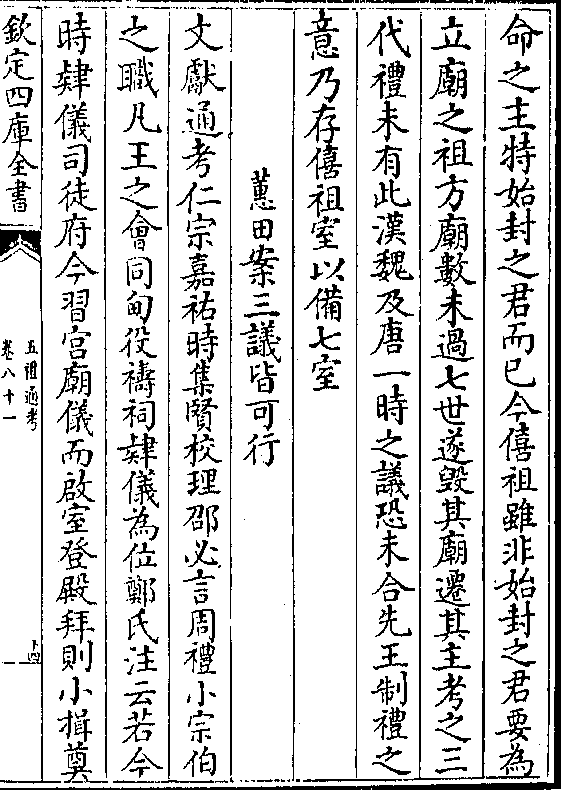 命之主特始封之君而已今僖祖雖非始封之君要為
立廟之祖方廟數未過七世遂毀其廟遷其主考之三
代禮未有此漢魏及唐一時之議恐未合先王制禮之
意乃存僖祖室以備七室
蕙田案三議皆可行
文獻通考仁宗嘉祐時集賢校理邵必言周禮小宗伯
之職凡王之會同甸役禱祠肄儀為位鄭氏注云若今
時肄儀司徒府今習宫廟儀而啟室登殿拜則小揖奠
欽定四庫全書
五禮通考
卷八十一
十四